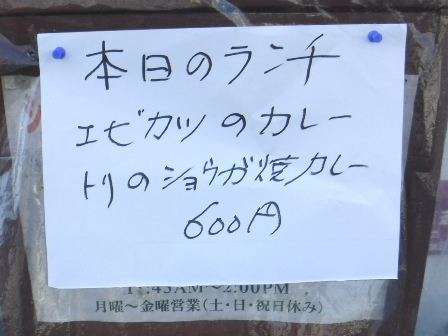 本日のランチ
エビカツのカレー
トリのショウガ焼カレー
600円
11:45AM～2:00PM
月曜～金曜営業(土・日・祝日休み)